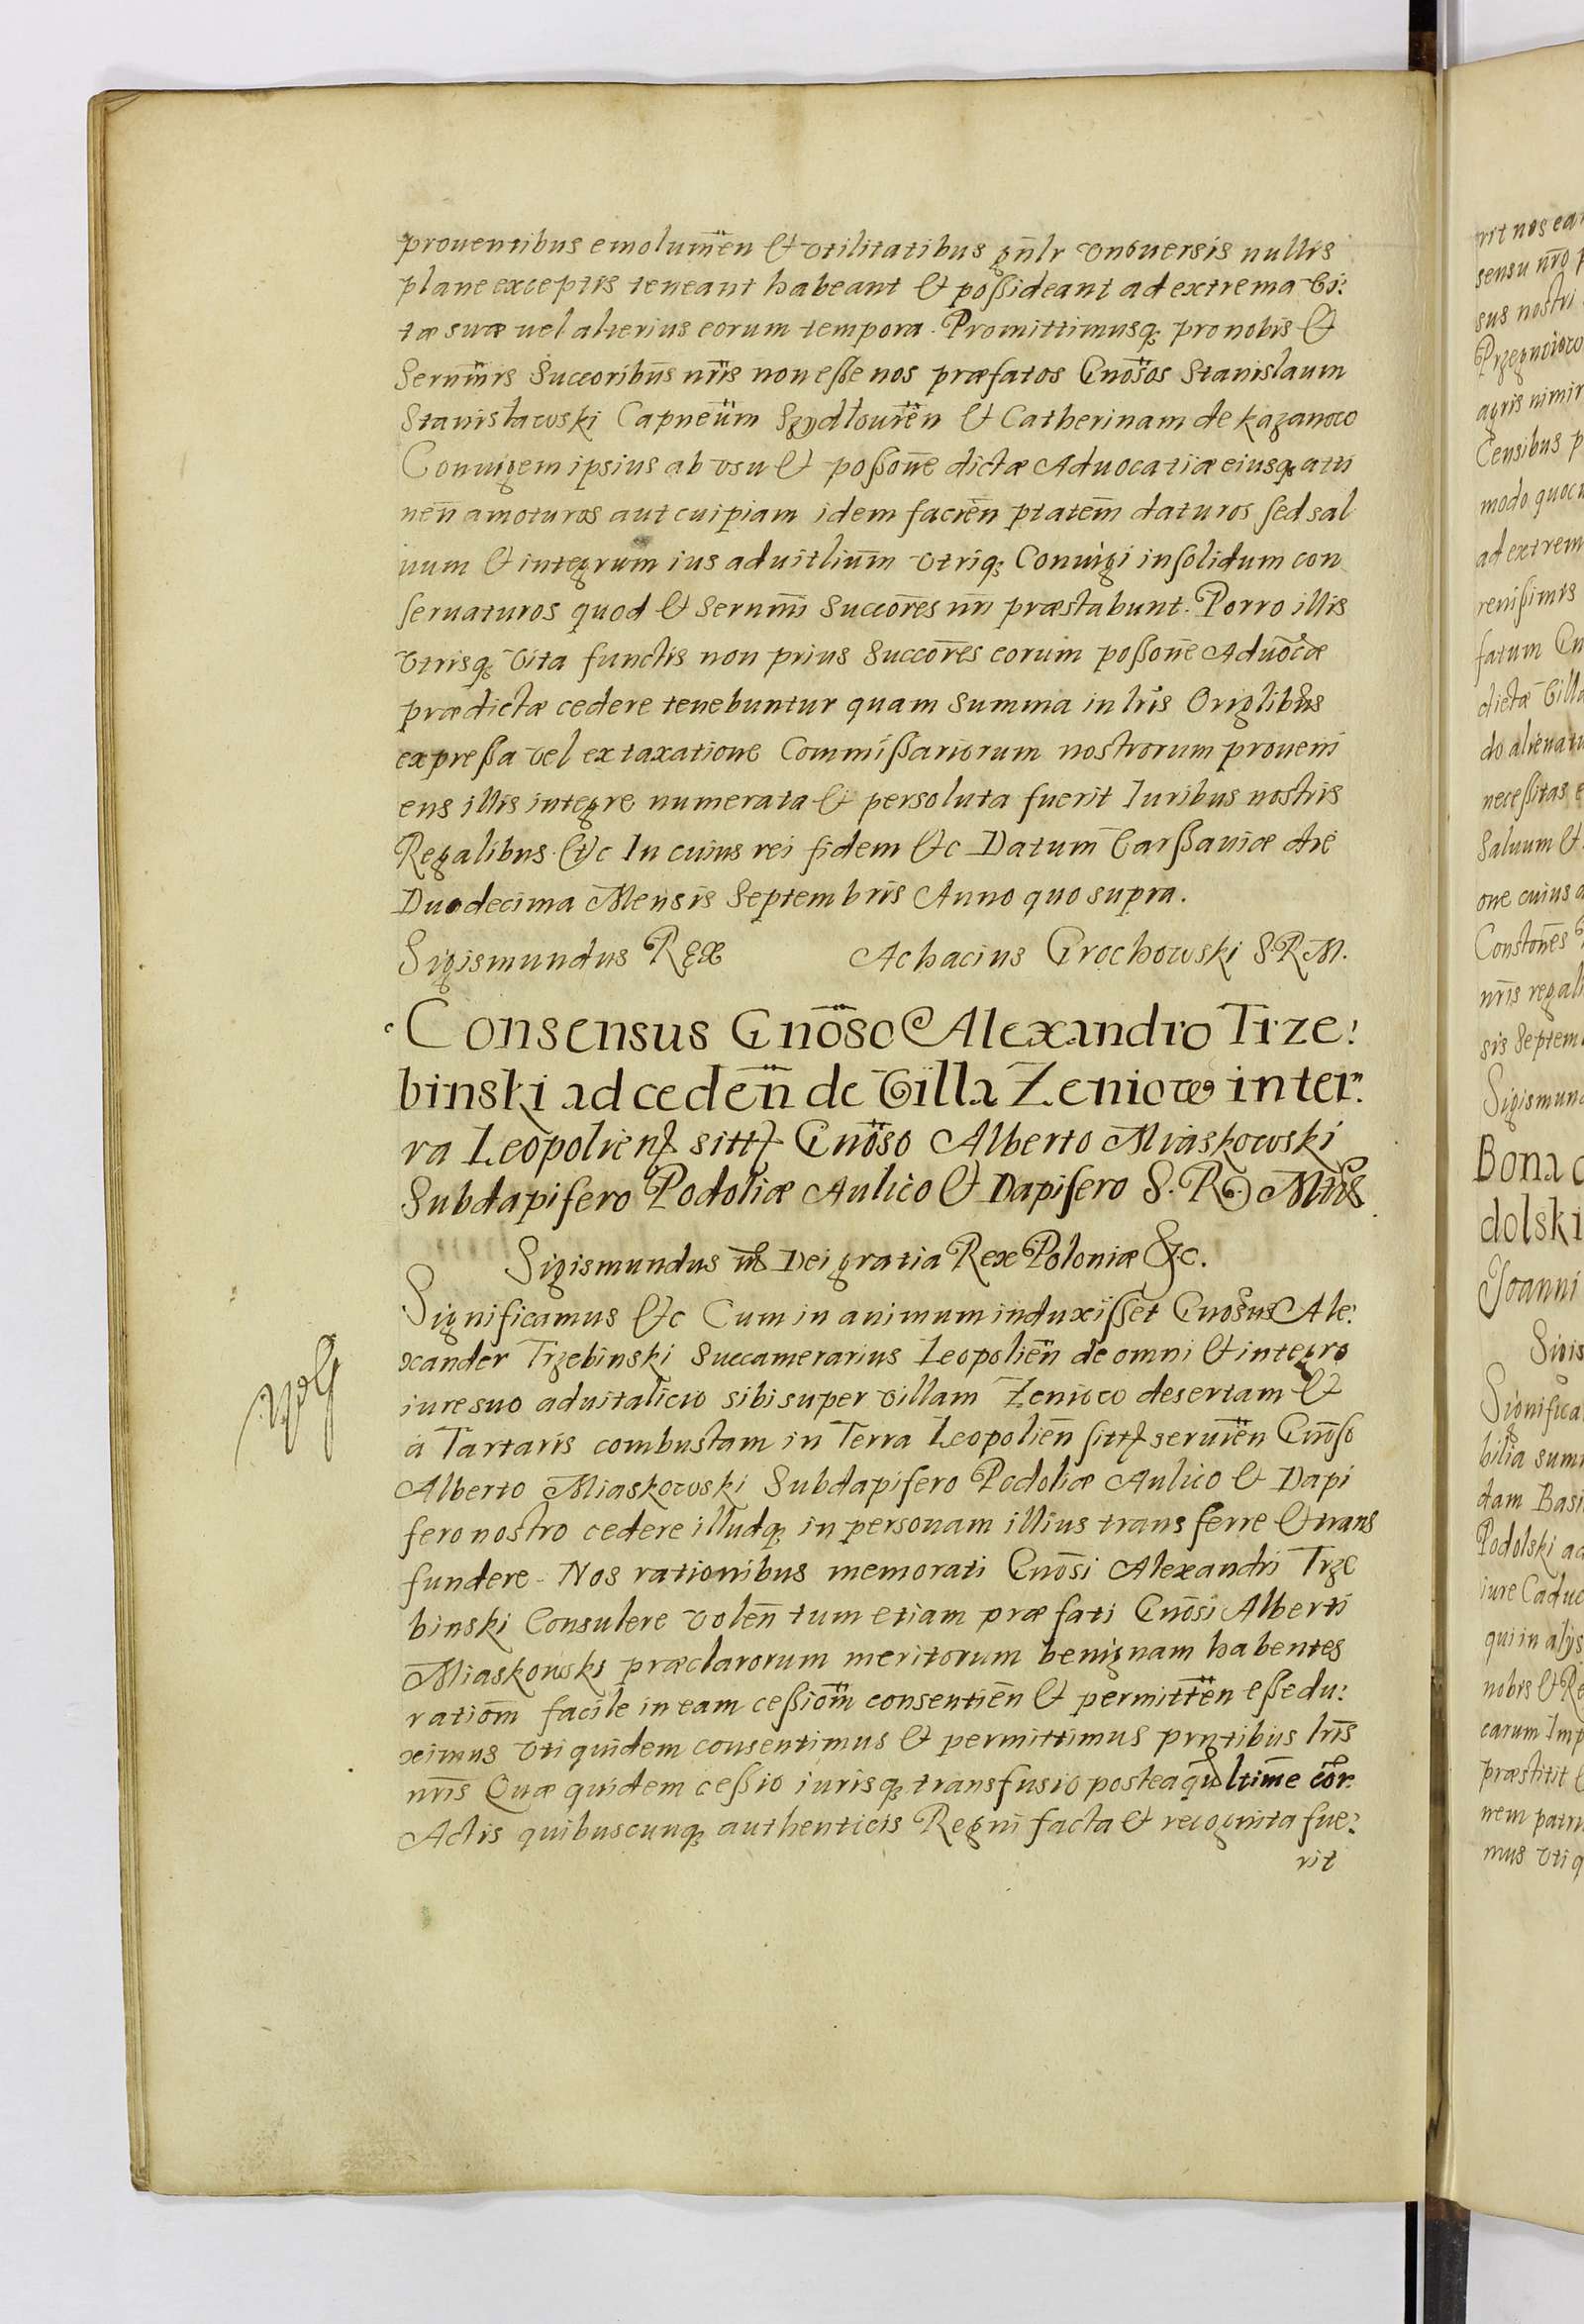 prouentibus emolumen̄ et vtilitatibus gn̄lr vniuersis nullis
plane exceptis teneant habeant et poßideant ad extrema vi:
tæ suæ uel alterius eorum tempora. Promittimusq; pro nobis et
Sernm̄is Succoribus nr̄is non eße nos præfatos Gnōsos Stanislaum
Stanisławski Capneūm Szydłouien̄ et Catherinam de Kazanow
Coniugem ipsius ab vsu et poßon̄e dictæ Aduocatiæ eiusq; atti
nen̄ amoturos aut cuipiam idem facien̄ ptatem̄ daturos sed sal
uum et integrum ius aduitlium̄ vtriq; Coniugi insolidum con
seruaturos quod et Sernm̄i Succores̄ nr̄i præstabunt. Porro illis
vtrisq; vita functis non prius Succores̄ eorum poßon̄e Aduoc̄æ
prædictæ cedere tenebuntur quam summa in lr̄is Origlibus
expreßa vel ex taxatione Commißariorum nostrorum proueni
ens illis integre numerata et persoluta fuerit Iuribus nostris
Regalibus etc In cuius rei fidem etc Datum Varßauiæ die
Duodecima Mensis Septembris Anno quo supra.
Sigismundus Rex Achacius Grochowski S.R.M.
Consensus Gnōso Alexandro Trze:
binski ad ceden̄ de Villa Zeniow in ter:
ra Leopolien̄ sitt Gnōso Alberto Miaskowski
Subdapifero Podoliæ Aulico et Dapifero S. R. Mtis
Sigismundus iii Dei gratia Rex Poloniæ &c.
Significamus etc Cum in animum induxißet Gnosus Ale:
xander Trzebinski Succamerarius Leopolien̄ de omni et integro
iure suo aduitalicio sibi super villam Zeniow desertam et
a Tartaris combustam in Terra Leopolien̄ sitt seruien̄ Gnōso
Alberto Miaskowski Subdapifero Podoliæ Aulico et Dapi
fero nostro cedere illudq; in personam illius trans ferre et trans
fundere. Nos rationibus memorati Gnōsi Alexandri Trze
binski Consulere volen̄ tum etiam præfati Gnōsi Alberti
Miaskowski præclarorum meritorum benignam habentes
ratiōm facile in eam ceßiōm consentien̄ et permitten̄ eße du:
ximus vti quidem consentimus et permittimus prntibus lr̄is
nr̄is Quæ quidem ceßio iurisq; transfusio posteaq̄ vltime cor.
Actis quibuscunq; authenticis Regni facta et recognita fue:
rit